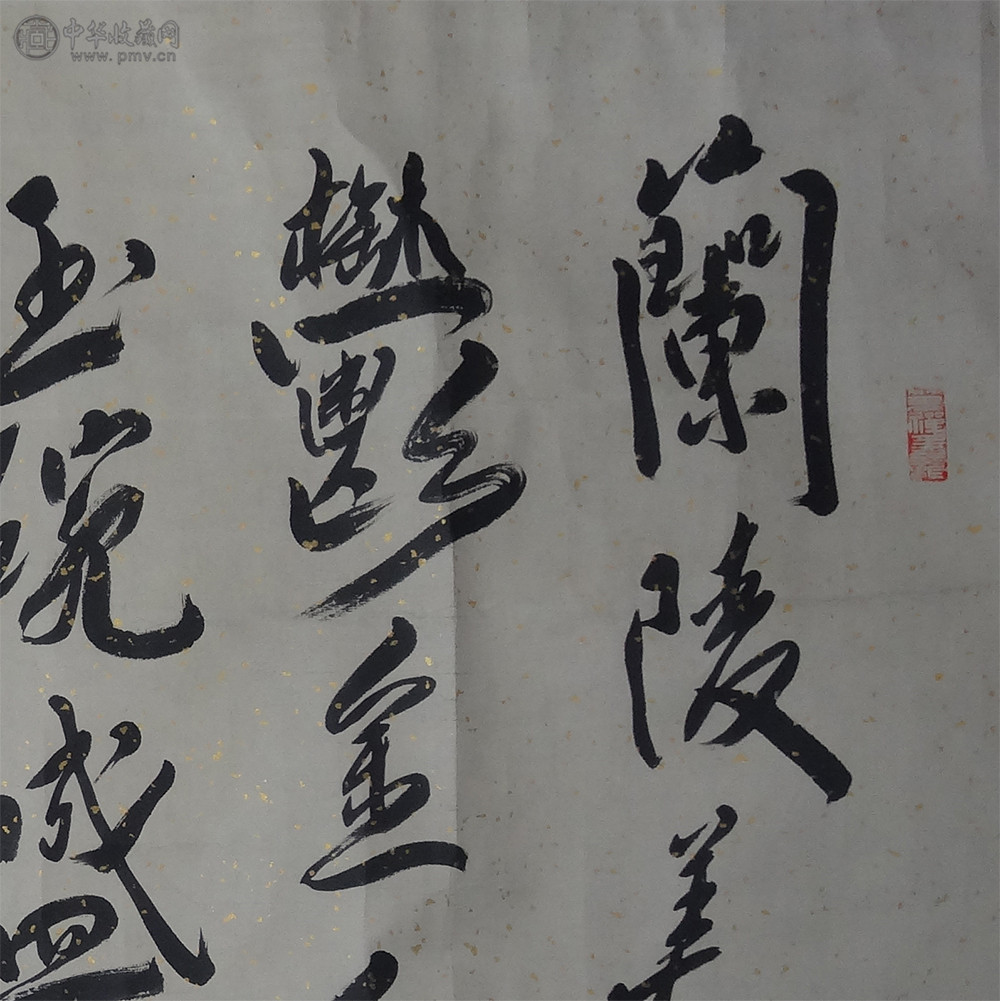 蘭陵美
鬱金
玉琬盛
中华收藏网
www.pmv.cn